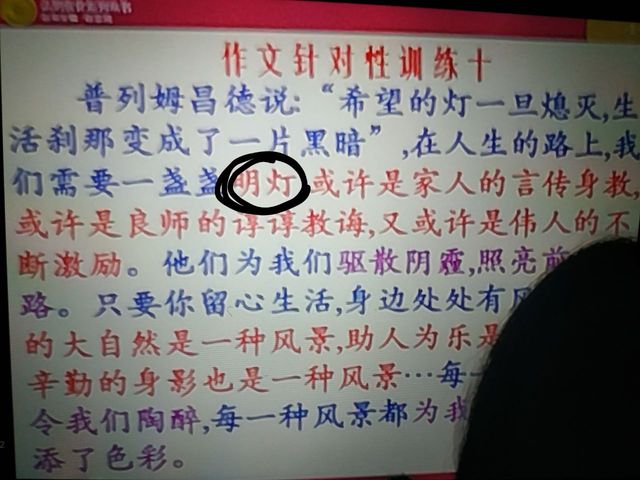 作文针对性训练十
普列姆昌德说:“希望的灯一旦熄灭,生
活刹那变成了一片黑暗”,在人生的路上,我
们需要一盏盏明灯 或许是家人的言传身教
或许是良师的谆谆教诲,又或许是伟人的不
断激励。他们为我们驱散阴霾,照亮前
路。只要你留心生活,身边处处有风
的大自然是一种风景,助人为乐是
辛勤的身影也是一种风景…每一
令我们陶醉,每一种风景都为我
添了色彩。